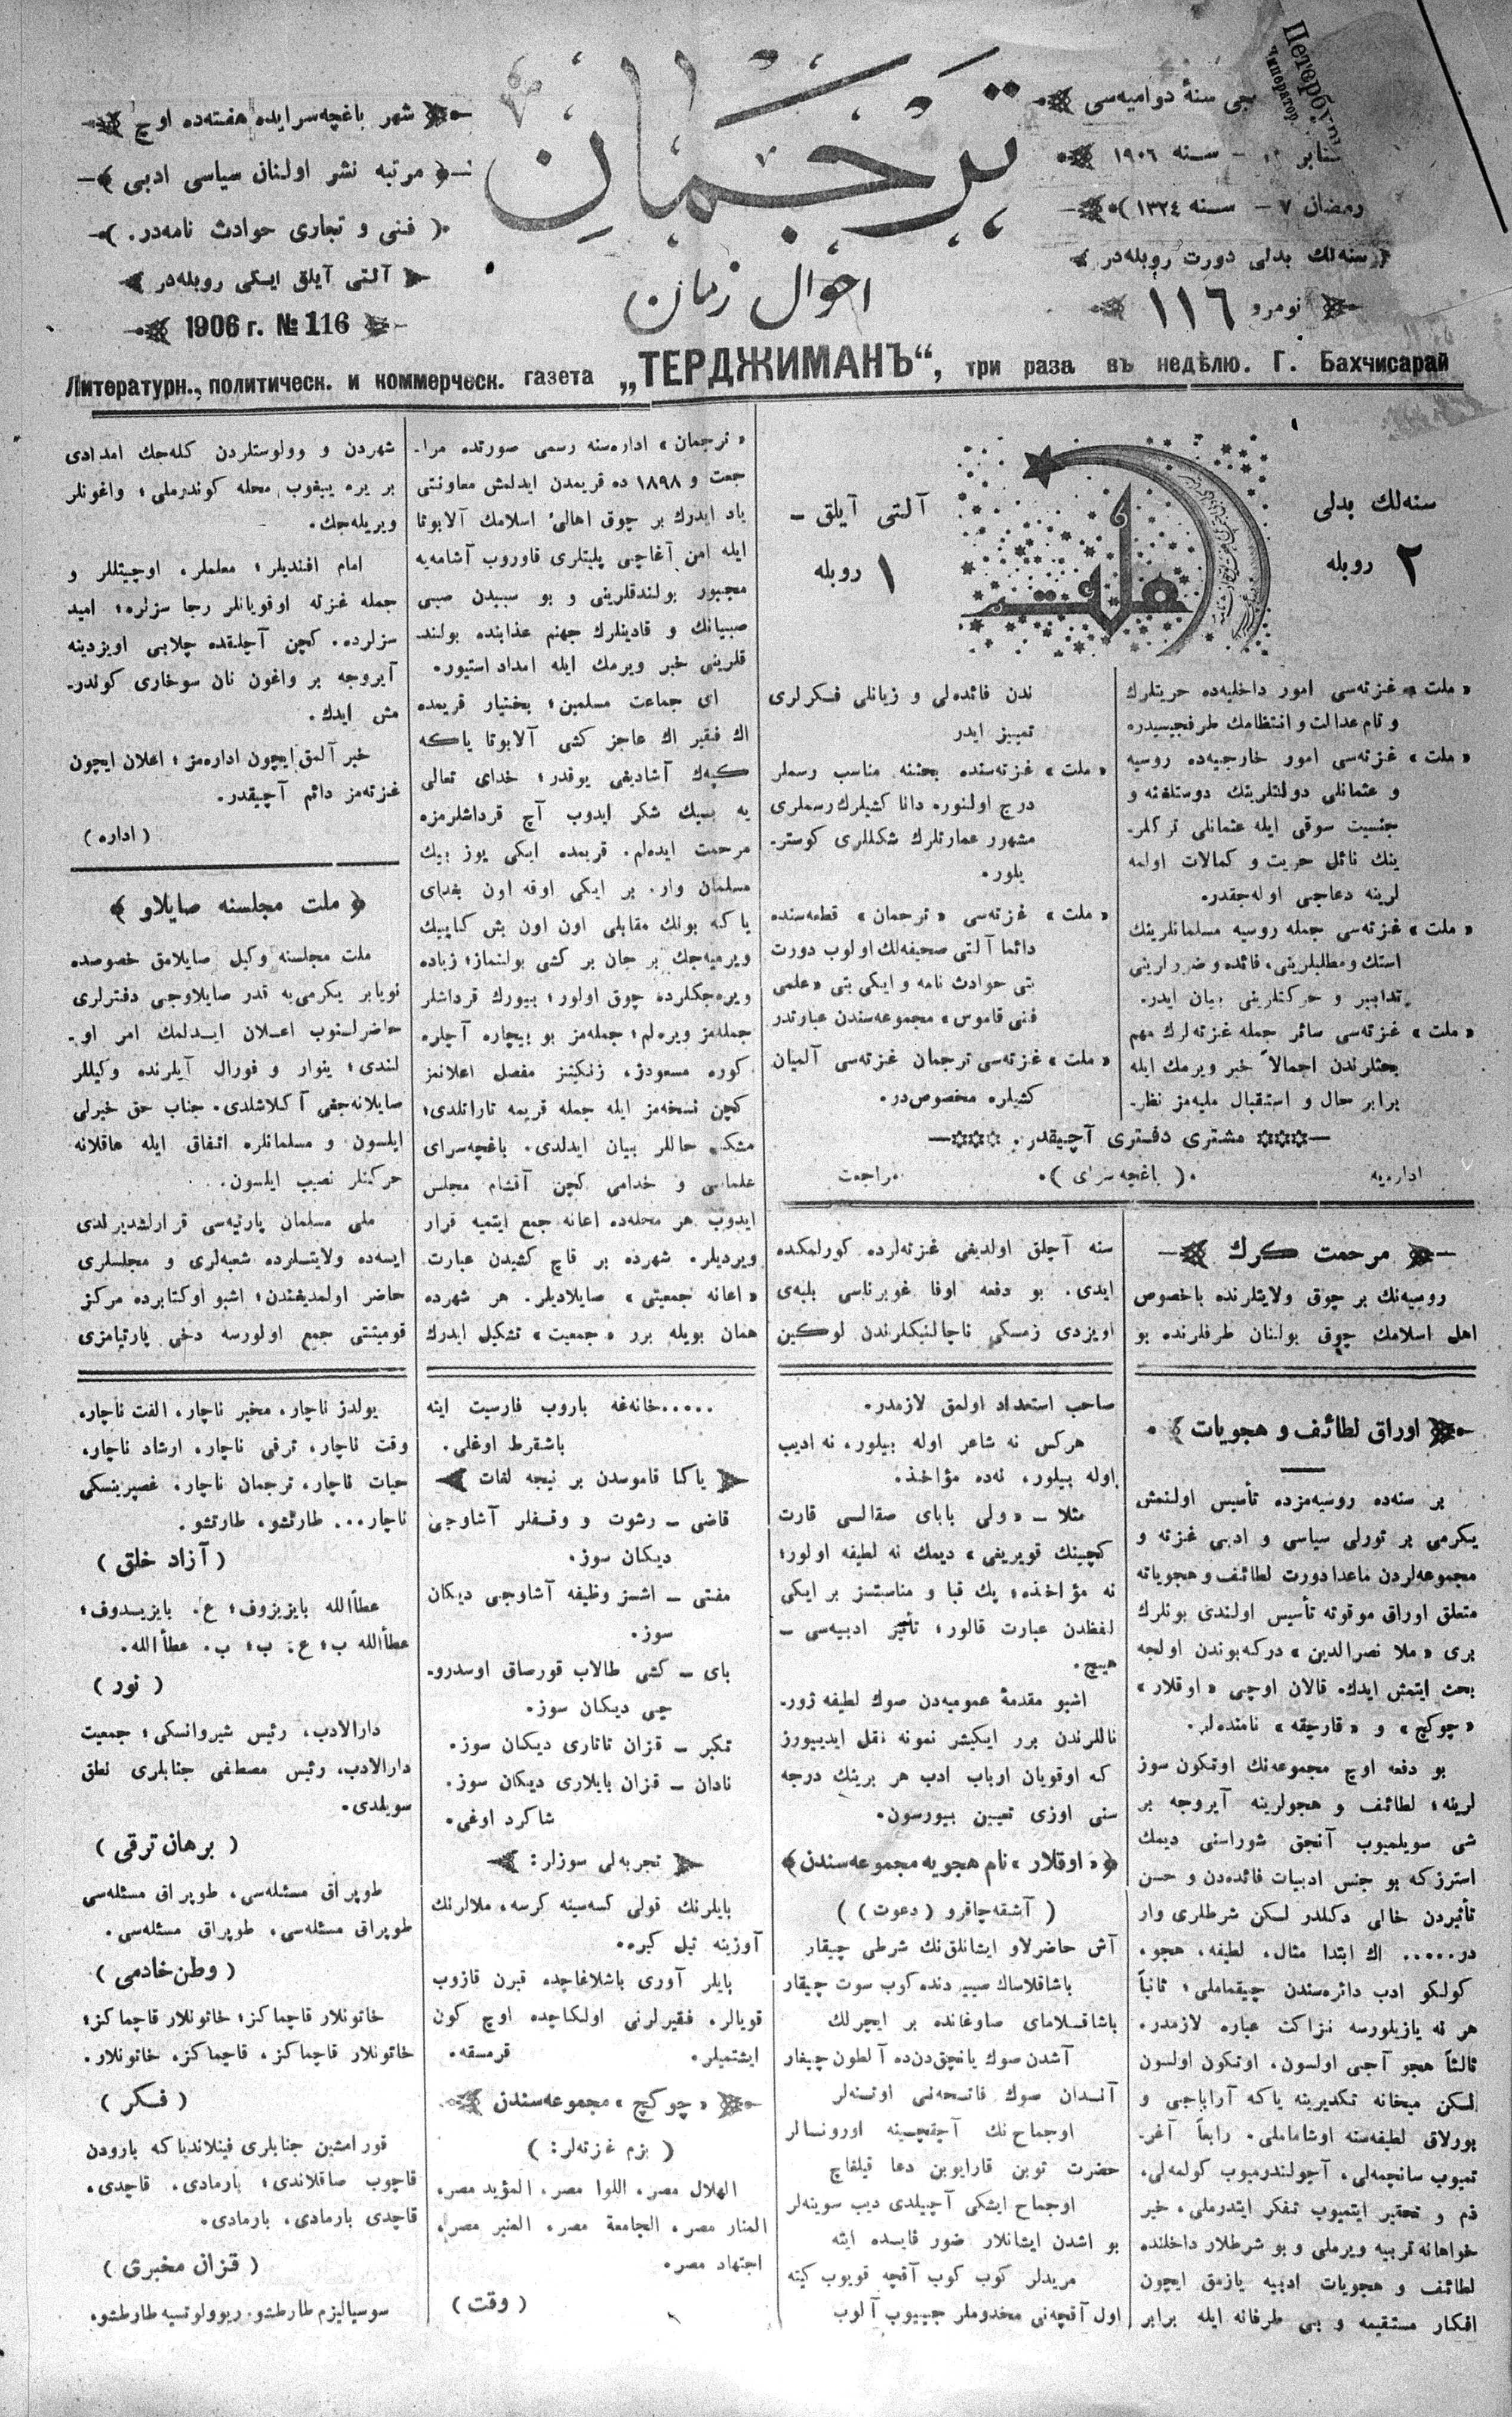 ترجمان
احوال زمان
شهر باغچه‌سرایده هفته‌ده اوچ
مرتبه نشر اولنان سیاسی ادبی
فنی و تجاری حوادث نامه‌در.
آلتی آیلق ایکی روبله‌در
1906 г. № 116
جی سنهٔ دوامیه‌سی
سنه ١٩٠٦
رمضان ٧ – سنه ١٣٢٤
سنه‌لك بدلی دورت روبله‌در
نومرو ١١٦
Литературн., политическ. и коммерческ. газета „ТЕРДЖИМАНЪ“, три раза въ недѣлю. Г. Бахчисарай
سنه‌لك بدلی
٢ روبله
ملت
آلتی آیلق –
١ روبله
« ملت » غزته‌سی امور داخلیه‌ده حریتلرك
و تام عدالت و انتظامك طرفجیسیدره
« ملت » غزته‌سی امور خارجیه‌ده روسیه
و عثمانلی دولتلرینك دوستلغنه و
جنسیت سوقی ایله عثمانلی ترکلر-
ینك نائل حریت و کمالات اولمه
لرینه دعاجی اوله‌جقدر.
« ملت » غزته‌سی جمله روسیه مسلمانلرینك
استك و مطلبلرینی، فائده و ضررلرینی
تدابیر و حرکتلرینی بیان ایدر.
« ملت » غزته‌سی سائر جمله غزته‌لرك مهم
بحثلرندن اجمالاً خبر ویرمك ایله
برابر حال و استقبال ملیه‌مز نظر-
ندن فائده‌لی و زیانلی فکرلری
تمییز ایدر
« ملت » غزته‌سنده بحثنه مناسب رسملر
درج اولنوره دانا کشیلرك رسملری
مشهور عمارتلرك شکللری کوستر-
یلور.
« ملت » غزته‌سی « ترجمان » قطعه‌سنده
دائما آلتی صحیفه‌لك اولوب دورت
بتی حوادث نامه و ایکی بتی « علمی
فنی قاموس » مجموعه‌سندن عبارتدر
« ملت » غزته‌سی ترجمان غزته‌سی آلمیان
کشیلره مخصوص‌در.
مشتری دفتری آچیقدر.
اداره‌یه ( باغچه سرای ) مراجعت
مرحمت کرك
روسیه‌نك بر چوق ولایتلرنده باخصوص
اهل اسلامك چوق بولنان طرفلرنده بو
سنه آچلق اولدیغی غزته‌لرده کورلمکده
ایدی. بو دفعه اوفا غوبرناسی بلبه‌ی
اویزدی زمسکی ناچالنیکلرندن لوکین
« ترجمان » اداره‌سنه رسمی صورتده مرا-
جعت و ١٨٩٨ ده قریمدن ایدلمش معاونتی
یاد ایدرك بر چوق اهالیٔ اسلامك آلابوتا
ایله امن آغاچی پلیتلری قاوروب آشامه‌یه
مجبور بولندقلرینی و بو سببدن صبی
صبیانك و قادینلرك جهنم عذابنده بولند-
قلرینی خبر ویرمك ایله امداد استیور.
ای جماعت مسلمین؛ بختیار قریمده
اك فقیر اك عاجز کشی آلابوتا یاکه
کپه‌ك آشادیغی یوقدر؛ خدای تعالی
یه بیك شکر ایدوب آچ قرداشلرمزه
مرحمت ایده‌لم. قریمده ایکی یوز بیك
مسلمان وار. بر ایکی اوقه اون بغدای
یاکه بونك مقابلی اون اون بش کاپیك
ویرمیه‌جك بر جان بر کشی بولنماز؛ زیاده
ویره‌جکلرده چوق اولور؛ بیورك قرداشلر
جمله‌مز ویره‌لم؛ جمله‌مز بو بیچاره آچلره
کوره مسعودز، زنکینز مفصل اعلانمز
کچن نسخه‌مز ایله جمله قریمه تاراتلدی؛
مشکل حاللر بیان ایدلدی. باغچه‌سرای
علماسی و خدامی کچن آقشام مجلس
ایدوب هر محله‌ده اعانه جمع ایتمیه قرار
ویردیلر. شهرده بر قاچ کشیدن عبارت
« اعانه جمعیتی » صایلادیلر. هر شهرده
همان بویله برر « جمعیت » تشکیل ایدرك
شهردن و وولوستلردن کله‌جك امدادی
بر یره ییغوب محله کوندرملی؛ واغونلر
ویریله‌جك.
امام افندیلر؛ معلملر، اوچیتللر و
جمله غزته اوقویانلر رجا سزلره؛ امید
سزلرده. کچن آچلقده چلابی اویزدینه
آیروجه بر واغون نان سوخاری کوندر-
مش ایدك.
خبر آلمق ایچون اداره‌مز؛ اعلان ایچون
غزته‌مز دائم آچیقدر.
( اداره )
ملت مجلسنه صایلاو
ملت مجلسنه وکیل صایلامق خصوصده
نویابر یکرمی‌یه قدر صایلاوجی دفترلری
حاضرلنوب اعلان ایدلمك امر او-
لندی؛ ینوار و فورال آیلرنده وکیللر
صایلانه‌جغی آکلاشلدی. جناب حق خیرلی
ایلسون و مسلمانلره اتفاق ایله عاقلانه
حرکتلر نصیب ایلسون.
ملی مسلمان پارتیه‌سی قرارلشدیرلدی
ایسه‌ده ولایتسلرده شعبه‌لری و مجلسلری
حاضر اولمدیغندن؛ اشبو اوکتابرده مرکز
قومیتتی جمع اولورسه دخی پارتیامزی
اوراق لطائف و هجویات
بر سنه‌ده روسیه‌مزده تأسیس اولنمش
یکرمی بر تورلی سیاسی و ادبی غزته و
مجموعه‌لردن ماعدا دورت لطائف و هجویاته
متعلق اوراق موقوته تأسیس اولندی بونلرك
بری « ملا نصرالدین » درکه بوندن اولجه
بحث ایتمش ایدك. قالان اوچی « اوقلار »
« چوکچ » و « قارچقه » نامنده‌لر.
بو دفعه اوچ مجموعه‌نك اوتکون سوز
لرینه؛ لطائف و هجولرینه آیروجه بر
شی سویلمیوب آنجق شوراسنی دیمك
استرزکه بو جنس ادبیات فائده‌دن و حسن
تأثیردن خالی دکلدر لکن شرطلری وار
در..... اك ابتدا مثال، لطیفه، هجو،
کولکو ادب دائره‌سندن چیقماملی؛ ثانیاً
هر نه یازیلورسه نزاکت عباره لازمدر.
ثالثاً هجو آجی اولسون، اوتکون اولسون
لکن میخانه تکدیرینه یاکه آراباجی و
بورلاق لطیفه‌سنه اوشاماملی. رابعاً آغر-
تمیوب سانچمه‌لی، آچولندرمیوب کولمه‌لی،
ذم و تحقیر ایتمیوب تفکر ایتدرملی، خیر
خواهانه تربیه ویرملی و بو شرطلار داخلنده
لطائف و هجویات ادبیه یازمق ایچون
افکار مستقیمه و بی طرفانه ایله برابر
صاحب استعداد اولمق لازمدر.
هرکس نه شاعر اوله بیلور، نه ادیب
اوله بیلور، نه‌ده مؤاخذ.
مثلا – « ولی بابای صقالسی قارت
کچینك قویریغی » دیمك نه لطیفه اولور؛
نه مؤاخذه؛ پك قبا و مناسبتسز بر ایکی
لفظدن عبارت قالور؛ تأثیر ادبیه‌سی –
هیچ.
اشبو مقدمهٔ عمومیه‌دن صوك لطیفه ژور-
ناللرندن برر ایکیشر نمونه نقل ایدییورز
که اوقویان ارباب ادب هر برینك درجه
سنی اوزی تعیین بیورسون.
« اوقلار » نام هجویه مجموعه‌سندن
( آشقه چاقرو ( دعوت ) )
آش حاضرلاو ایشانلق‌نك شرطی چیقار
باشاقلاساك صییر دنده کوب سوت چیقار
باشاقلامای صاوغانده بر ایچرلك
آشدن صوك یانچق‌دن‌ده آلطون چیغار
آندان صوك فاتحه‌نی اوتنه‌لر
اوجماح نك آچقچینه اورونالر
حضرت توبن قارایوبن دعا قیلغاچ
اوجماح ایشکی آچیلدی دیب سوینه‌لر
بو اشدن ایشانلار ضور فایده ایته
مریدلر کوب کوب آقچه قویوب کیته
اول آقچه‌نی مخدوملر جییوب آلوب
.....خانه‌غه باروب فارسیت ایته
باشقرط اوغلی.
یاکا قاموسدن بر نیجه لغات
قاضی – رشوت و وقفلر آشاوجی
دیکان سوز.
مفتی – اشسز وظیفه آشاوجی دیکان
سوز.
بای – کشی طالاب قورصاق اوسدرو-
چی دیکان سوز.
تکبر – قزان تاتاری دیکان سوز.
نادان – قزان بایلاری دیکان سوز.
شاکرد اوغی.
تجربه‌لی سوزلر:
بایلرنك قولی کسه‌سینه کرسه، ملالرنك
آوزینه تیل کیره.
بایلر آوری باشلاغاچده قبرن قازوب
قویالر. فقیرلرنی اولکاچده اوچ کون
ایشتمیلر.
قرمسقه.
« چوکچ » مجموعه‌سندن
( بزم غزته‌لر: )
الهلال مصر، اللوا مصر، المؤید مصر،
المنار مصر، الجامعة مصر، المنبر مصر،
اجتهاد مصر.
( وقت )
یولدز ناچار، مخبر ناچار، الفت ناچار،
وقت ناچار، ترقی ناچار، ارشاد ناچار،
حیات ناچار، ترجمان ناچار، غصپرینسکی
ناچار... طارتشو، طارتشو.
( آزاد خلق )
عطأالله بایزیزوف؛ ع. بایزیدوف؛
عطأالله ب؛ ع. ب؛ ب. عطأالله.
( نور )
دارالادب، رئیس شیروانسکی؛ جمعیت
دارالادب، رئیس مصطفی جنابلری نطق
سویلدی.
( برهان ترقی )
طوپراق مسئله‌سی، طوپراق مسئله‌سی
طوپراق مسئله‌سی، طوپراق مسئله‌سی.
( وطن خادمی )
خاتونلار قاچماکز؛ خاتونلار قاچماکز؛
خاتونلار قاچماکز، قاچماکز، خاتونلار.
( فکر )
قورامشین جنابلری فینلاندیاکه بارودن
قاچوب صاقلاندی؛ بارمادی، قاچدی،
قاچدی بارمادی، بارمادی.
( قزان مخبری )
سوسیالیزم طارطشو. ریوولوتسیه طارطشو.